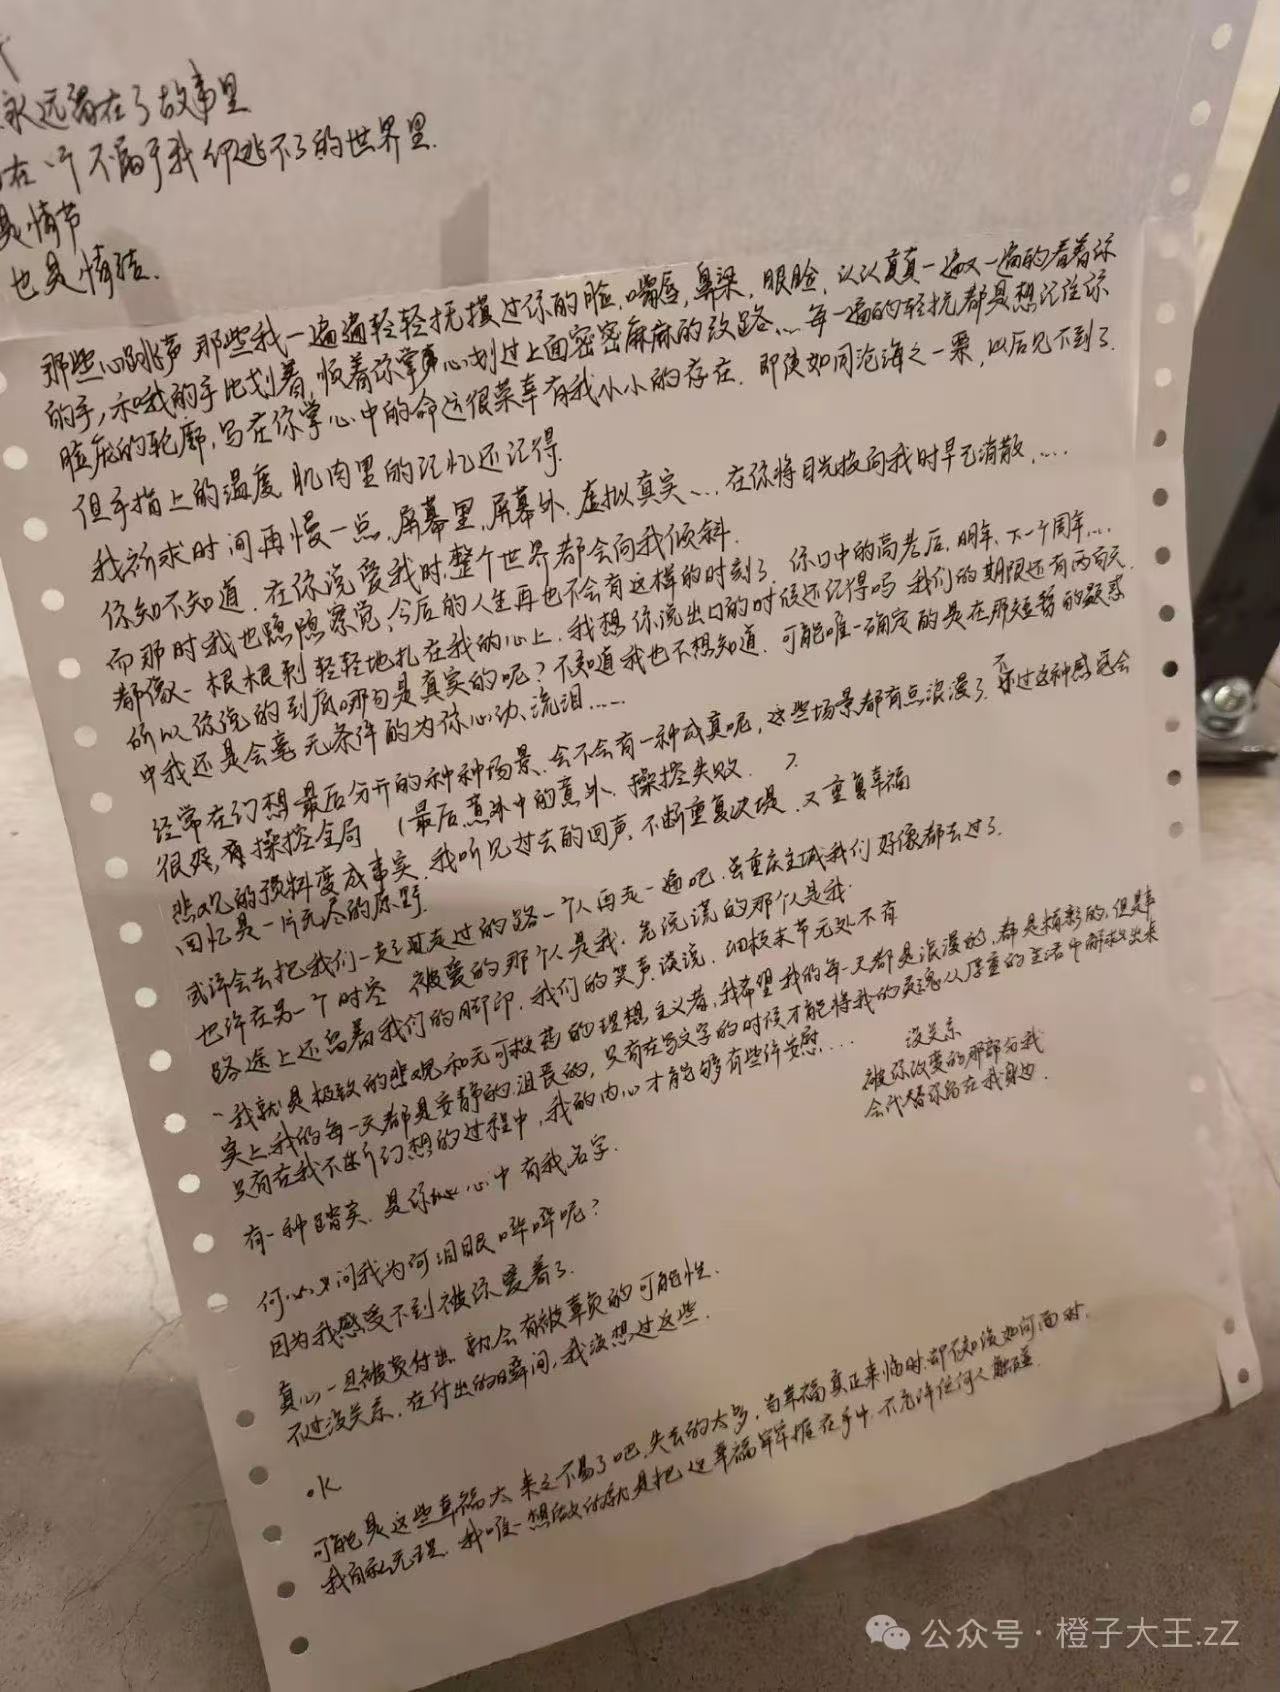 永远留在了故事里
在一个不属于我们逃不了的世界里.
是情节
也是情结.
那些心跳声 那些我一遍遍轻轻抚摸过你的脸,嘴唇,鼻梁,眼脸,认认真真一遍又一遍的看着你
的手,和我的手比划着,顺着你掌心划过上面密密麻麻的纹路、…每一遍的轻抚都是想记住你
脸庞的轮廓,写在你掌心中的命运很荣幸有我小小的存在.即使如同沧海之一粟,以后见不到了.
但手指上的温度 肌肉里的记忆还记得.
我祈求时间再慢一点,屏幕里,屏幕外.虚拟真实、…在你将目光投向我时早已消散.….
你知不知道.在你说爱我时,整个世界都会向我倾斜.
而那时我也隐隐察觉,今后的人生再也不会有这样的时刻了.你口中的高考后,明年、下一个周年….
都像一根根刺轻轻地扎在我的心上.我想你说出口的时候还记得吗 我们的期限还有两旬天.
所以你说的到底哪句是真实的呢?不知道我也不想知道.可能唯一确定的是在那短暂的疑惑
中我还是会毫无条件的为你心动、流泪……
经常在幻想最后分开的种种场景.会不会有一种成真呢,这些场景都有点浪漫了.不过这种感觉会
很爽,有操控全局 (最后意外中的意外.操控失败. )
悲观的预料变成事实.我听见过去的回声.不断重复决堤.又重复幸福
回忆是一片无尽的原野.
或许会去把我们一起走过的路一个人再走一遍吧.虽重庆主城我们好像都去过了.
也许在另一个时空 被爱的那个人是我.先说谎的那个人是我.
路途上还留着我们的脚印.我们的笑声.谈说.细枝末节无处不有
、我就是极致的悲观和无可救药的理想主义者,我希望我的每一天都是浪漫的,都是精彩的,但是事
实上我的每一天都是安静的.沮丧的,只有在写文字的时候才能将我的灵魂从厚重的生活中解救出来
只有在我不断幻想的过程中,我的内心才能够有些许安慰….
没关系
被你改变的那部分我
会代替你留在我身边.
有一种踏实.是你心中有我名字.
何必问我为何泪眼哗哗呢?
因为我感受不到被你爱着了.
真心一旦被付出.就会有被辜负的可能性.
不过没关系.在付出的瞬间,我没想过这些.
.水
可能是这些幸福太来之不易了吧.失去的太多,当幸福真正来临时.却不知该如何面对.
我自私无理.我唯一想做的就是把这幸福牢牢握在手中.不允许任何人触碰.
公众号·橙子大王.zZ